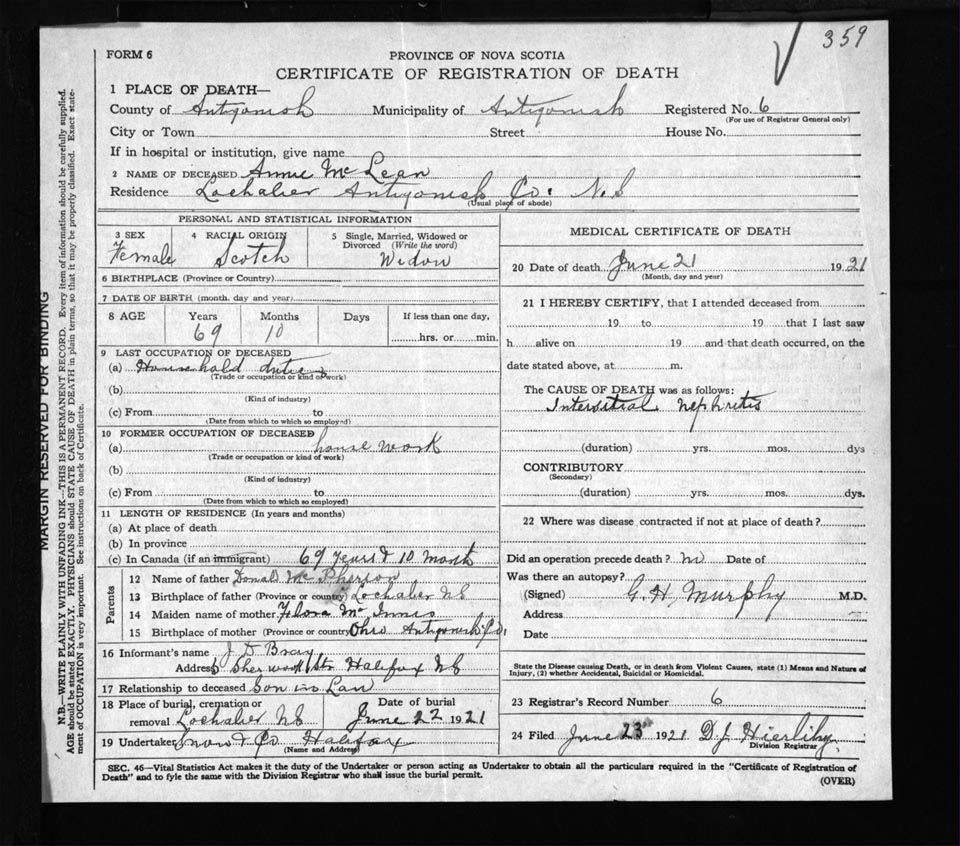 359
FORM 6
PROVINCE OF NOVA SCOTIA
CERTIFICATE OF REGISTRATION OF DEATH
1 PLACE OF DEATH—
County of Antigonish Municipality of Antigonish Registered No. 6
(For use of Registrar General only)
City or Town Street House No.
If in hospital or institution, give name
2 NAME OF DECEASED Annie McLean
Residence Lochaber Antigonish Co: N.S
(Usual place of abode)
PERSONAL AND STATISTICAL INFORMATION
3 SEX 4 RACIAL ORIGIN 5 Single, Married, Widowed or
Divorced (Write the word)
Female Scotch Widow
6 BIRTHPLACE (Province or Country)
7 DATE OF BIRTH (month, day and year)
8 AGE Years Months Days If less than one day,
69 10 hrs. or min.
9 LAST OCCUPATION OF DECEASED
(a) Household duties
(Trade or occupation or kind of work)
(b)
(Kind of industry)
(c) From to
(Date from which to which so employed)
10 FORMER OCCUPATION OF DECEASED
(a) house work
(Trade or occupation or kind of work)
(b)
(Kind of industry)
(c) From to
(Date from which to which so employed)
11 LENGTH OF RESIDENCE (In years and months)
(a) At place of death
(b) In province
(c) In Canada (if an immigrant) 69 years & 10 month
Parents
12 Name of father Donald McPherson
13 Birthplace of father (Province or country) Lochaber NS
14 Maiden name of mother Flora McInnis
15 Birthplace of mother (Province or country) Ohio Antigonish Co.
16 Informant's name J D Bray
Address Str. Halifax NS
17 Relationship to deceased Son in Law
18 Place of burial, cremation or Date of burial
removal Lochaber NS June 22 1921
19 Undertaker Snow & Co Halifax
(Name and Address)
MEDICAL CERTIFICATE OF DEATH
20 Date of death June 21 1921
(Month, day and year)
21 I HEREBY CERTIFY, that I attended deceased from
19 to 19 that I last saw
h alive on 19 and that death occurred, on the
date stated above, at m.
The CAUSE OF DEATH was as follows:
Intersitial nephritis
(duration) yrs. mos. dys
CONTRIBUTORY
(Secondary)
(duration) yrs. mos. dys.
22 Where was disease contracted if not at place of death?
Did an operation precede death? no Date of
Was there an autopsy?
(Signed) G. H. Murphy M.D.
Address
Date
State the Disease causing Death, or in death from Violent Causes, state (1) Means and Nature of
Injury, (2) whether Accidental, Suicidal or Homicidal.
23 Registrar's Record Number 6
24 Filed June 23 1921 D. J. Hierlihy
Division Registrar
SEC. 46—Vital Statistics Act makes it the duty of the Undertaker or person acting as Undertaker to obtain all the particulars required in the "Certificate of Registration of
Death" and to fyle the same with the Division Registrar who shall issue the burial permit.
(OVER)
MARGIN RESERVED FOR BINDING
N.B.—WRITE PLAINLY WITH UNFADING INK—THIS IS A PERMANENT RECORD. Every item of information should be carefully supplied.
AGE should be stated EXACTLY. PHYSICIANS should STATE CAUSE OF DEATH in plain terms, so that it may be properly classified. Exact state-
ment of OCCUPATION is very important. See instructions on back of Certificate.